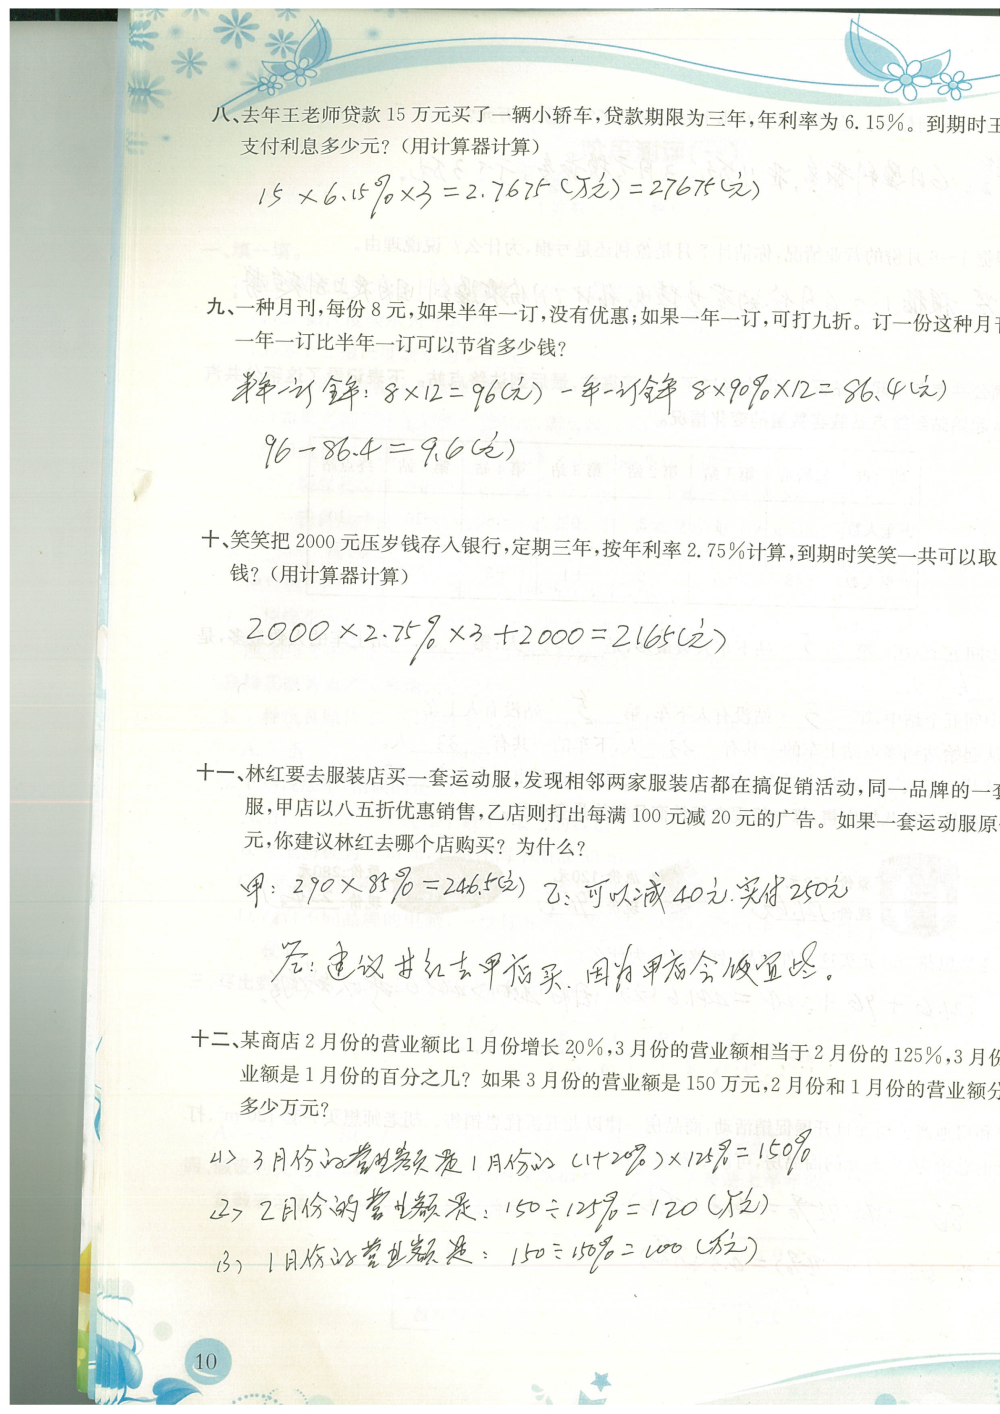 八、去年王老师贷款 15 万元买了一辆小轿车,贷款期限为三年,年利率为 6.15%。到期时王
支付利息多少元?(用计算器计算)
15×6.15%×3=2.7675(万元)=27675(元)
九、一种月刊,每份 8 元,如果半年一订,没有优惠;如果一年一订,可打九折。订一份这种月刊
一年一订比半年一订可以节省多少钱?
半年一订全年:8×12=96(元) 一年一订全年 8×90%×12=86.4(元)
96-86.4=9.6(元)
十、笑笑把 2000 元压岁钱存入银行,定期三年,按年利率 2.75%计算,到期时笑笑一共可以取
钱?(用计算器计算)
2000×2.75%×3+2000=2165(元)
十一、林红要去服装店买一套运动服,发现相邻两家服装店都在搞促销活动,同一品牌的一套
服,甲店以八五折优惠销售,乙店则打出每满 100 元减 20 元的广告。如果一套运动服原
元,你建议林红去哪个店购买?为什么?
甲:290×85%=246.5(元) 乙:可以减40元.实付250元
答:建议林红去甲店买.因为甲店会便宜些。
十二、某商店 2 月份的营业额比 1 月份增长 20%,3 月份的营业额相当于 2 月份的 125%,3 月份
业额是 1 月份的百分之几?如果 3 月份的营业额是 150 万元,2 月份和 1 月份的营业额分
多少万元?
(1) 3月份的营业额是1月份的(1+20%)×125%=150%
(2) 2月份的营业额是:150÷125%=120(万元)
(3) 1月份的营业额是:150÷150%=100(万元)
10